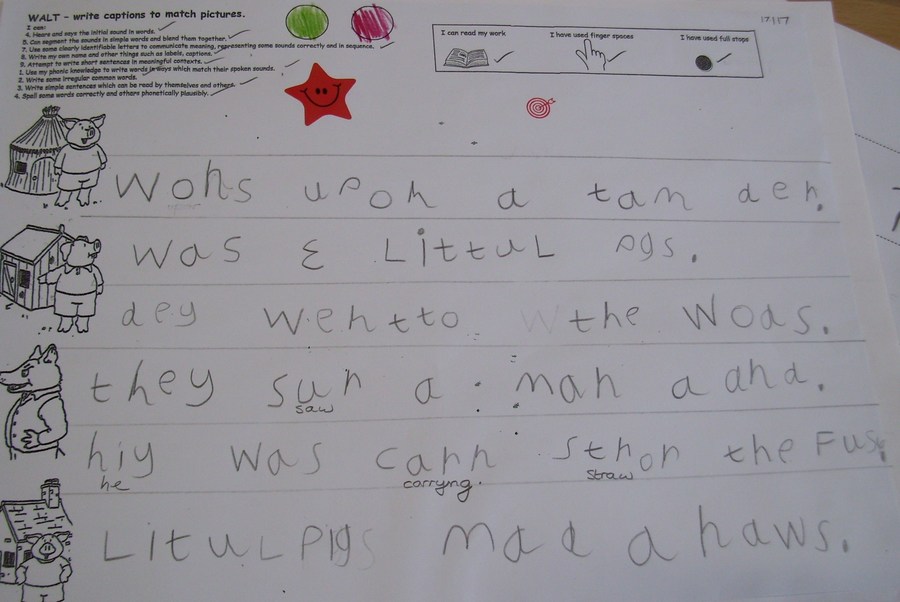 WALT - write captions to match pictures.
I can:
4. Hears and says the initial sound in words.
5. Can segment the sounds in simple words and blend them together.
7. Use some clearly identifiable letters to communicate meaning, representing some sounds correctly and in sequence.
8. Write my own name and other things such as labels, captions.
9. Attempt to write short sentences in meaningful contexts.
1. Use my phonic knowledge to write words in ways which match their spoken sounds.
2. Write some irregular common words.
3. Write simple sentences which can be read by themselves and others.
4. Spell some words correctly and others phonetically plausibly.
I can read my work
I have used finger spaces
I have used full stops
Wohs upoh a tam deh.
was 3 Littul pgs.
dey wehtto the wods.
they suh a mah a dhd.
saw
hiy was cahh sthoh the Fus
he carryng. straw
Litul pigs mad a haws.